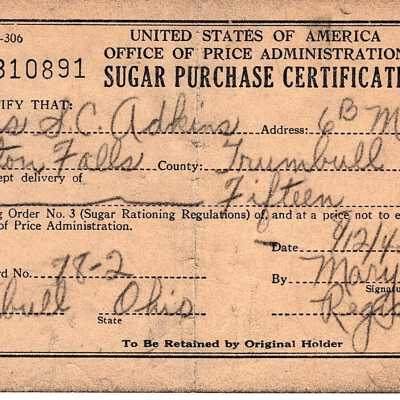 -306
UNITED STATES OF AMERICA
OFFICE OF PRICE ADMINISTRATION
310891 SUGAR PURCHASE CERTIFICATE
TIFY THAT:
S.C. Adkins Address: 6B M
ton Falls County: Trumbull
cept delivery of Fifteen
ng Order No. 3 (Sugar Rationing Regulations) of, and at a price not to e
of Price Administration.
Date
rd No. 78-2 By Mary
Signatu
bull Ohio Regis
State
To Be Retained by Original Holder